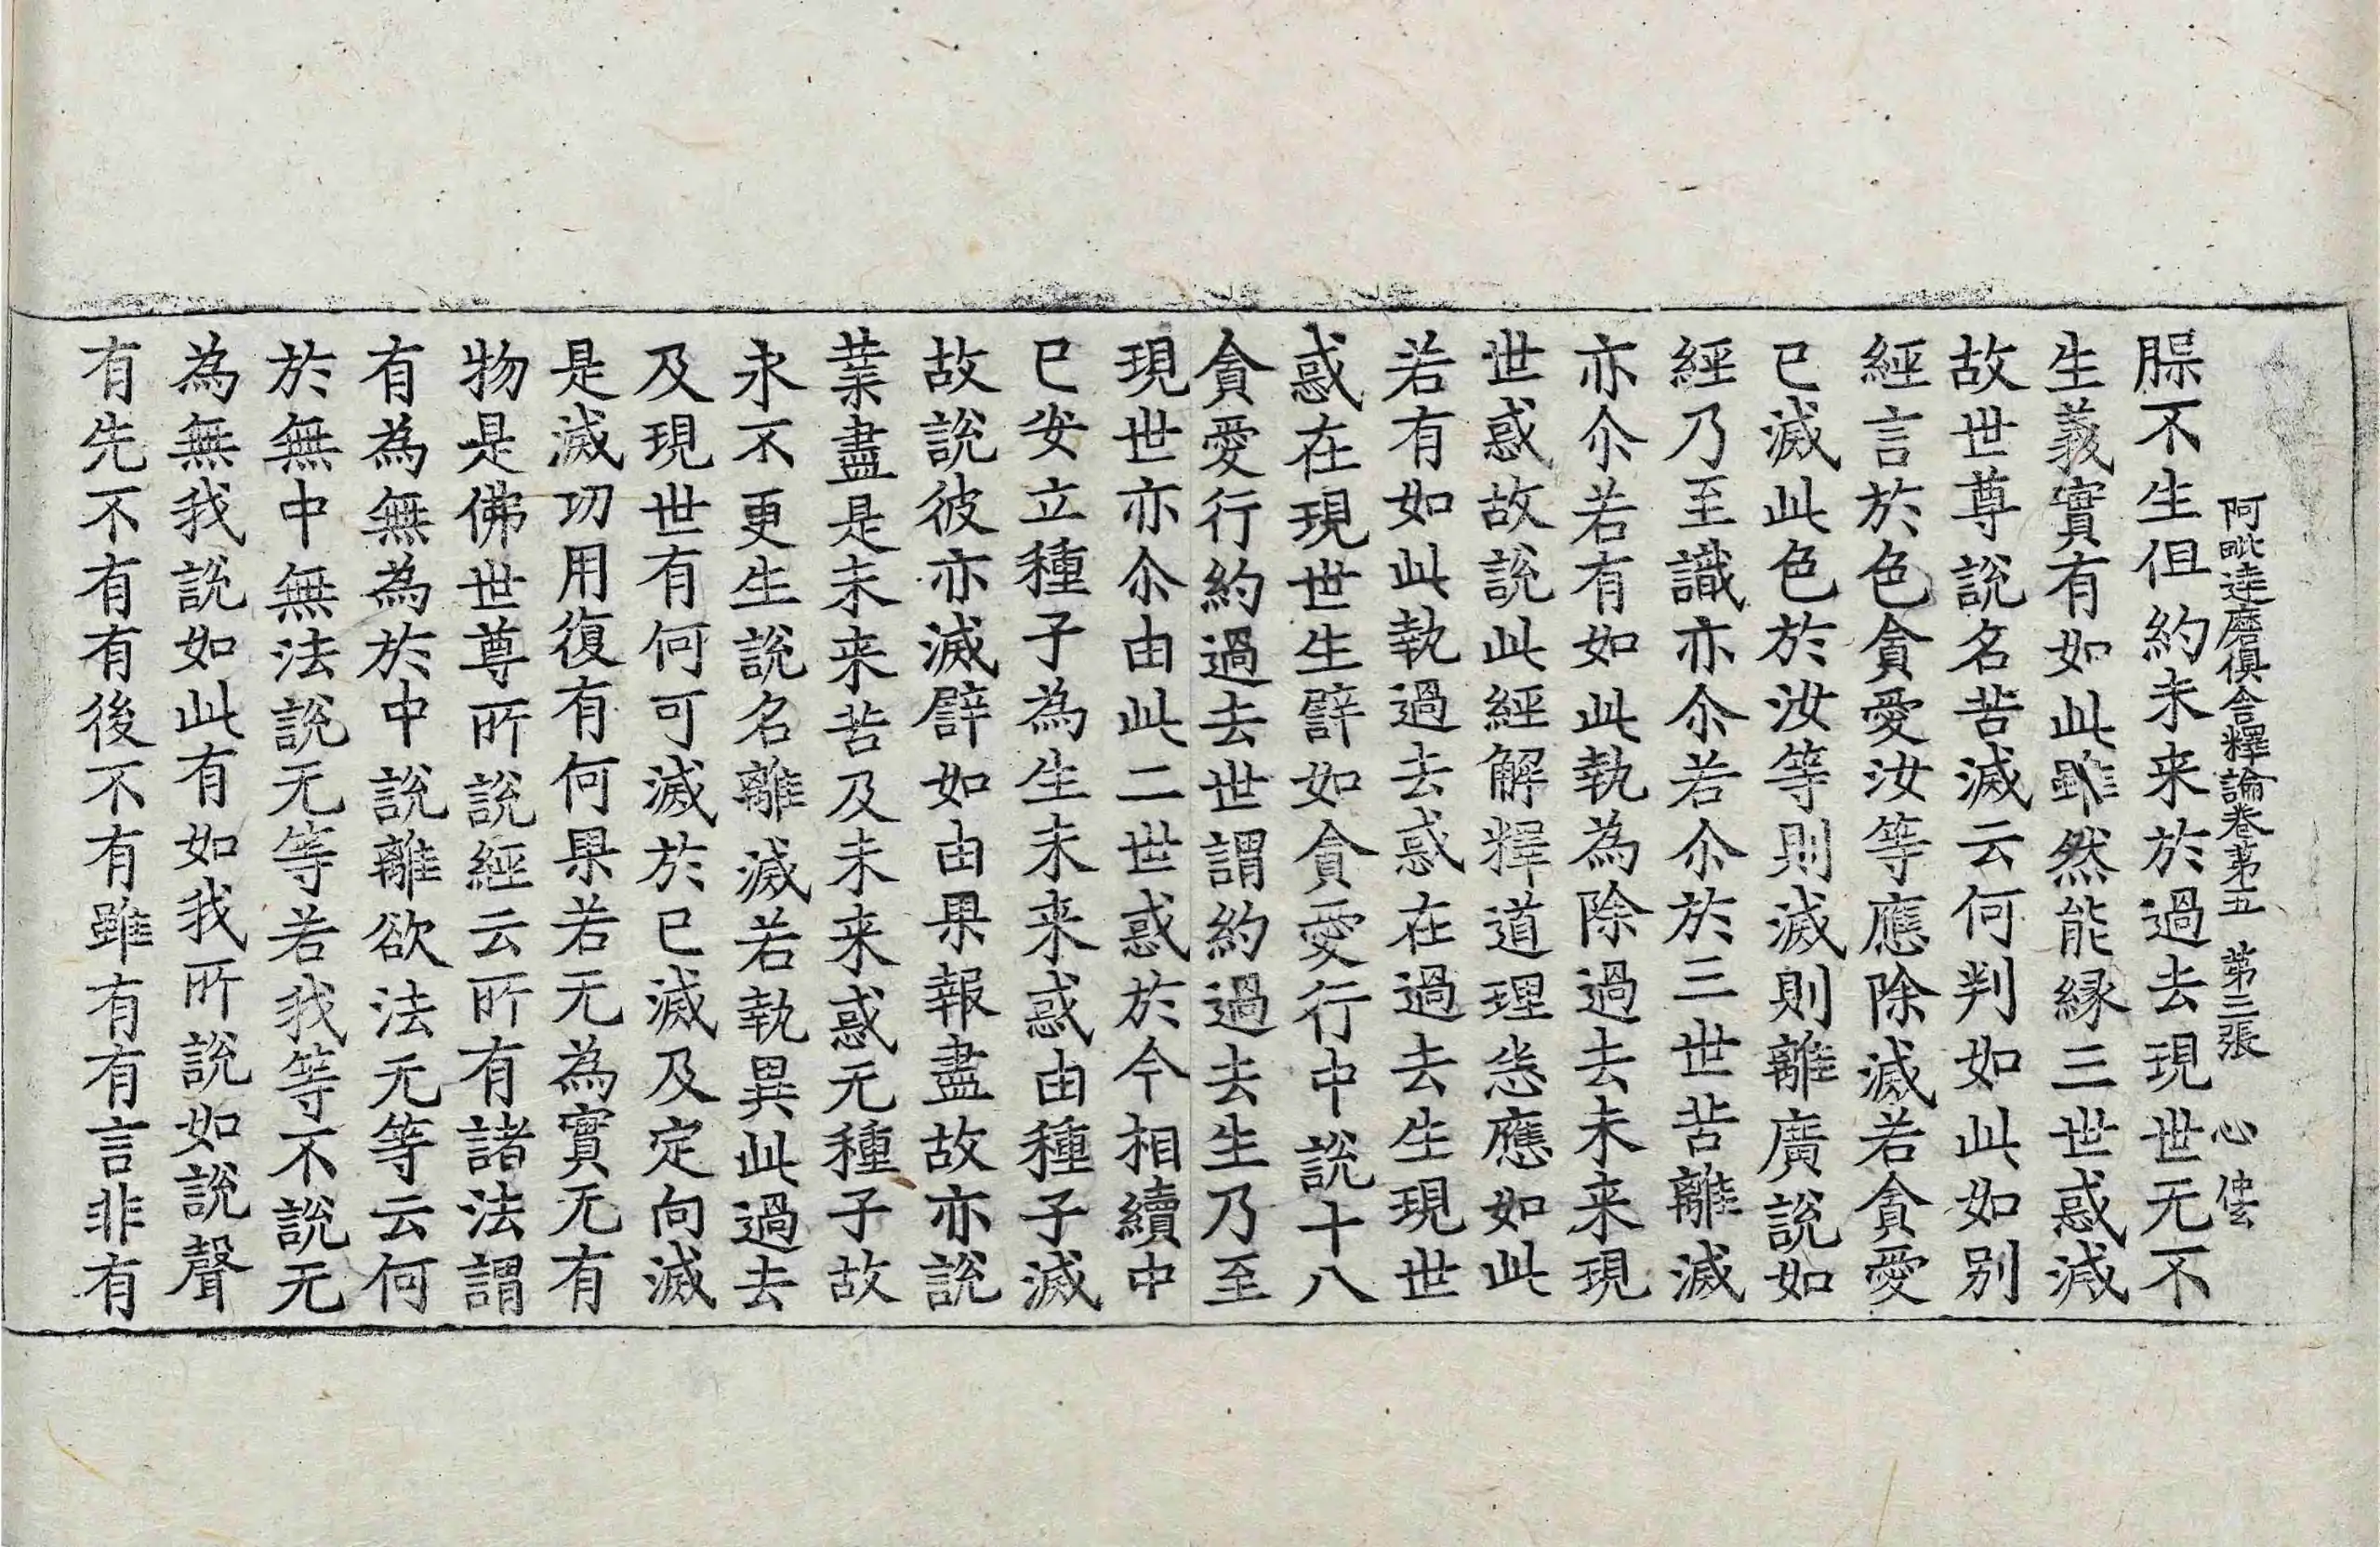 阿毗達磨俱舍釋論卷第五 第三張 心
脲不生但約未来於過去現世无不
生義實有如此雖然能緣三世惑滅
故世尊說名苦滅云何判如此如別
經言於色貪愛汝等應除滅若貪愛
已滅此色於汝等則滅則離廣說如
經乃至識亦尒若尒於三世苦離滅
亦尒若有如此執為除過去未来現
世惑故說此經解釋道理恙應如此
若有如此執過去惑在過去生現世
惑在現世生譬如貪愛行中說十八
貪愛行約過去世謂約過去生乃至
現世亦尒由此二世惑於今相續中
已安立種子為生未来惑由種子滅
故說彼亦滅譬如由果報盡故亦說
業盡是未来苦及未来惑无種子故
永不更生說名離滅若執異此過去
及現世有何可滅於已滅及定向滅
是滅功用復有何果若无為實无有
物是佛世尊所說經云所有諸法謂
有為無為於中說離欲法无等云何
於無中無法說无等若我等不說无
為無我說如此有如我所說如說聲
有先不有有後不有雖有有言非有